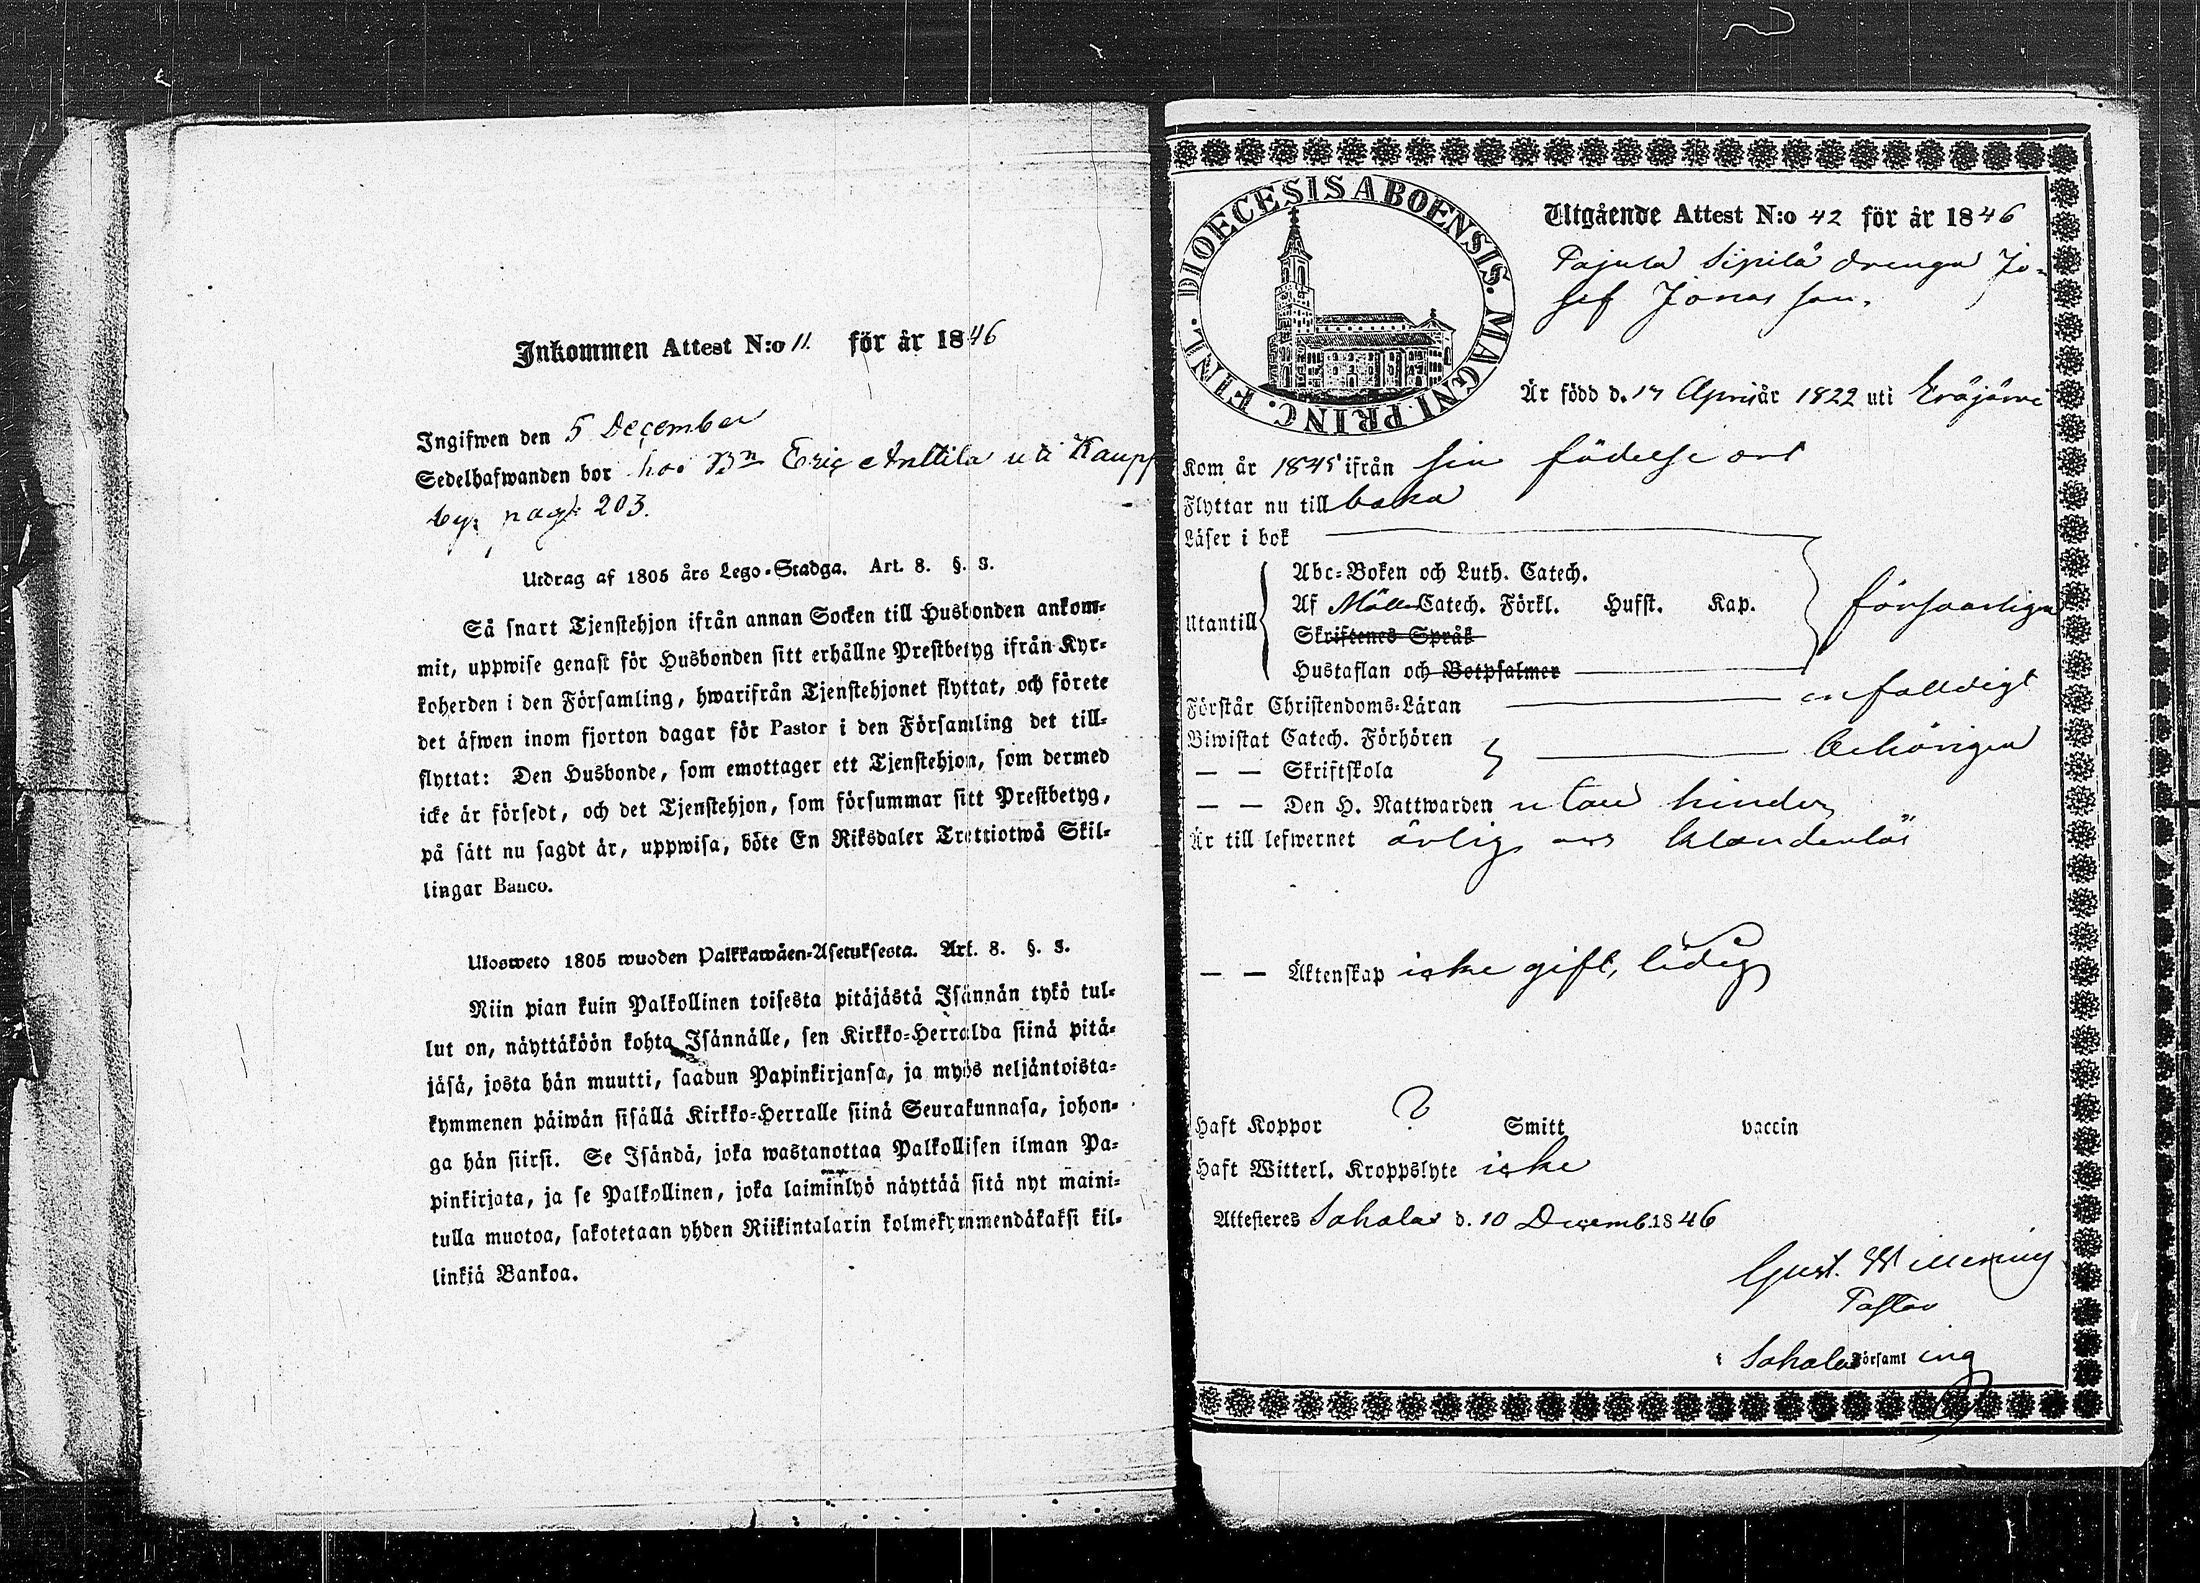 Inkommen Attest N:o 11. för år 1846
Ingifwen den 5 December
Sedelhafwanden bor hos Bn Eric Anttila uti Kaupp
by. pag: 203.
Utdrag af 1805 års Lego-Stadga. Art. 8. §. 3.
Så snart Tjenstehjon ifrån annan Socken till Husbonden ankom-
mit, uppwise genast för Husbonden sitt erhållne Prestbetyg ifrån Kyr-
koherden i den Församling, hwarifrån Tjenstehjonet flyttat, och förete
det äfwen inom fjorton dagar för Pastor i den Församling det till-
flyttat: Den Husbonde, som emottager ett Tjenstehjon, som dermed
icke är försedt, och det Tjenstehjon, som försummar sitt Prestbetyg,
på sätt nu sagdt är, uppwisa, böte En Riksdaler Trettiotwå Skil-
lingar Banco.
Ulosweto 1805 wuoden Palkkawäen-Asetuksesta. Art. 8. §. 3.
Niin pian kuin Palkollinen toisesta pitäjästä Isännän tykö tul-
lut on, näyttäköön kohta Isännälle, sen Kirkko-Herralda siinä pitä-
jäsä, josta hän muutti, saadun Papinkirjansa, ja myös neljäntoista-
kymmenen päiwän sisällä Kirkko-Herralle siinä Seurakunnasa, johon-
ga hän siirsi. Se Isändä, joka wastanottaa Palkollisen ilman Pa-
pinkirjata, ja se Palkollinen, joka laiminlyö näyttää sitä nyt maini-
tulla muotoa, sakotetaan yhden Riikintalarin kolmekymmendäkaksi kil-
linkiä Bankoa.
DIOECESIS ABOENSIS. MAGNI. PRINC. FINL.
Utgående Attest N:o 42 för år 1846
Pajula Sipilä drengen Jo-
sef Jonasson.
Är född d. 17 April år 1822 uti Eräjärvi
Kom år 1845 ifrån sin födelse ort
Flyttar nu till baka
Läser i bok
Utantill
Abc-Boken och Luth. Catech.
Af Möll. Catech. Förkl. Husst. Kap. försvarligen
Skriftenes Språk
Hustaflan och Botpsalmer
Förstår Christendoms-Läran enfalldigt
Biwistat Catech. Förhören behörigen
— — Skriftskola
— — Den H. Nattwarden utan hinder
Är till lefwernet ärlig och klanderlös
— — Äktenskap icke gift, ledig
Haft Koppor ? Smitt vaccin
Haft Witterl. Kroppslyte icke
Attesteres Sahalax d. 10 Decemb. 1846
Gust.
Pastor
i Sahalax Församling